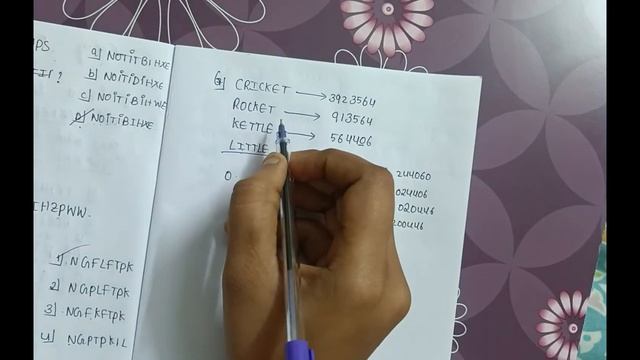 a] NOITIBIHXE
b] NOITIDIHXE
c] NOITIBIHWE
d] NOITIBIHXE
IHZPWW.
1] NGFLFTPK
2] NGPLFTPK
3] NGFKFTPK
4] NGPTPKIL
CRICKET → 3923564
ROCKET → 913564
KETTLE → 564406
LITTLE
0.
244060
024406
020446
200446